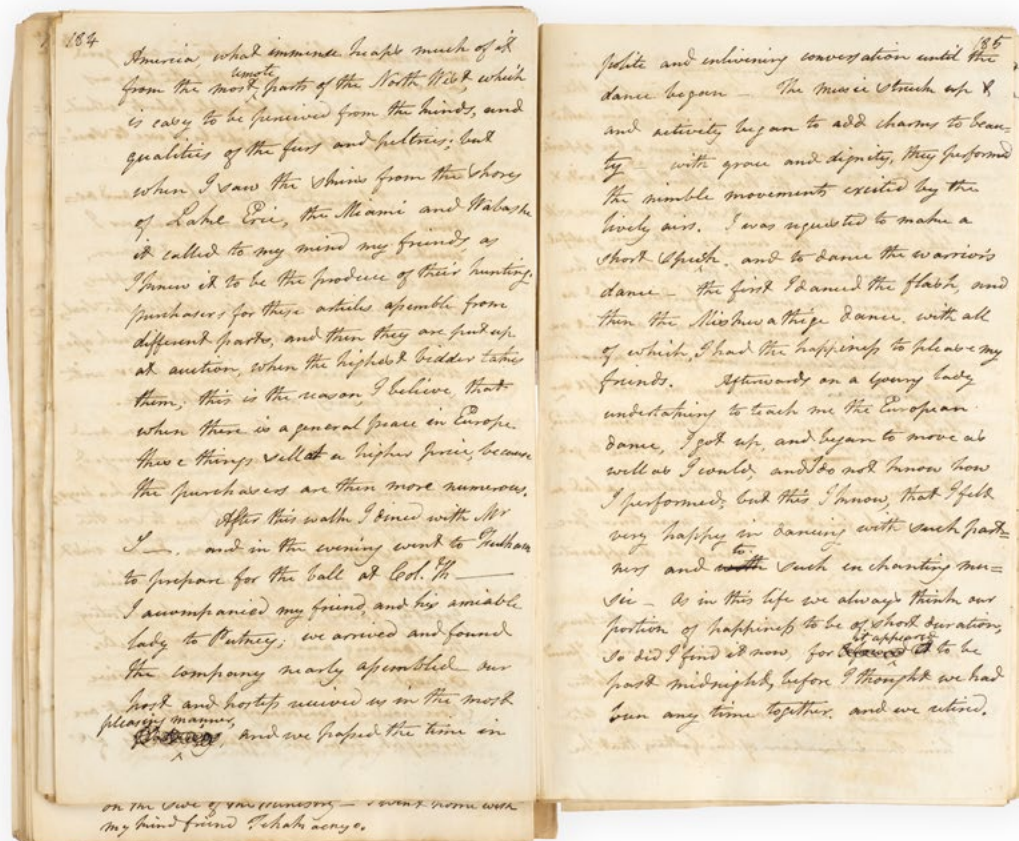 184
America, what immence heaps much of it
remote
from the most parts of the North West, which
is easy to be perceived from the kinds, and
qualities of the furs and peltries; but
when I saw the skins from the shores
of Lake Erie, the Miami and Wabashe
it called to my mind my friends, as
I knew it to be the produce of their hunting.
purchasers for these articles assemble from
different parts, and then they are put up
at auction, when the highest bidder takes
them; this is the reason, I believe, that
when there is a general peace in Europe
these things sell at a higher price, because
the purchasers are then more numerous.
After this walk I dined with Mr
S—. and in the evening went to
to prepare for the ball at Col. Th—
I accompanied my friend, and his amiable
lady to Putney; we arrived and found
the company nearly assembled our
host and hostess received us in the most
pleasing manner,
and we passed the time in
on the side of the — I went home with
my kind friend
185
polite and enlivining conversation until the
dance began — The music struck up &
and activity began to add charms to beau-
ty — with grace and dignity, they performed
the nimble movements excited by the
lively airs. I was requested to make a
short speech. and to dance the warrior's
dance — the first I danced the flash, and
then the dance. with all
of which, I had the happiness to please my
friends. Afterwards on a young lady
undertaking to teach me the European
dance, I got up, and began to move as
well as I could, and I do not know how
I performed; but this I know, that I felt
very happy in dancing with such part=
to
ners and with such enchanting mu=
sic — As in this life we always think our
portion of happiness to be of short duration,
it appeared
so did I find it now, for to be
past midnight, before I thought we had
been any time together. and we retired.